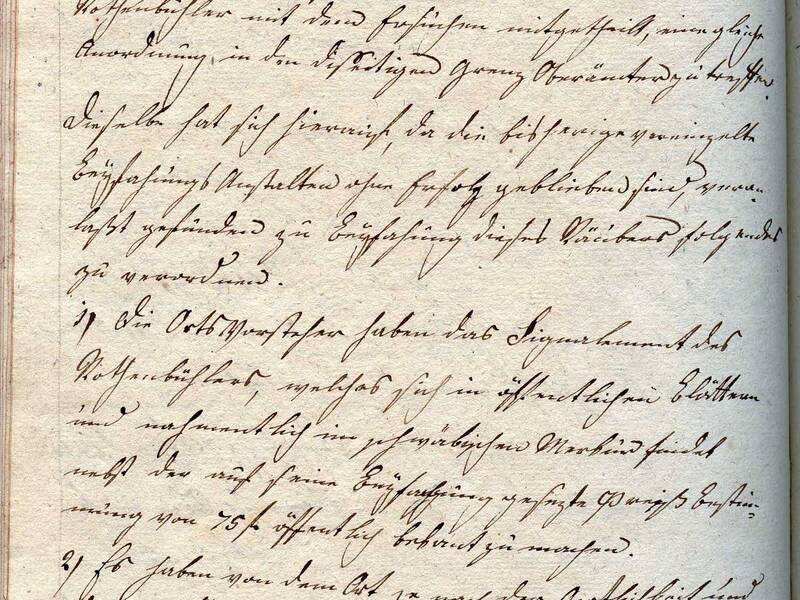 Rothenbühler mit dem Ersuchen mitgetheilt, eine gleiche
Anordnung in den disseitigen Grenz Oberämter zu treffen.
Dieselbe hat sich hierauf, da die bisherige vereinzelte
Beyfahungs Anstalten ohne Erfolg geblieben sind, veran-
laßt gefunden zu Beyfahung dieses Räubers folgendes
zu verordnen.
1) Die Orts Vorsteher haben das Signalement des
Rothenbühlers, welches sich in öffentlichen Blättern
und nahmentlich im schwäbischen Merkur findet
nebst der auf seine Beyfahung gesezte Preiß Bestim-
mung von 75 f. öffentlich bekant zu machen.
2) Es haben von dem Ort je nach der und